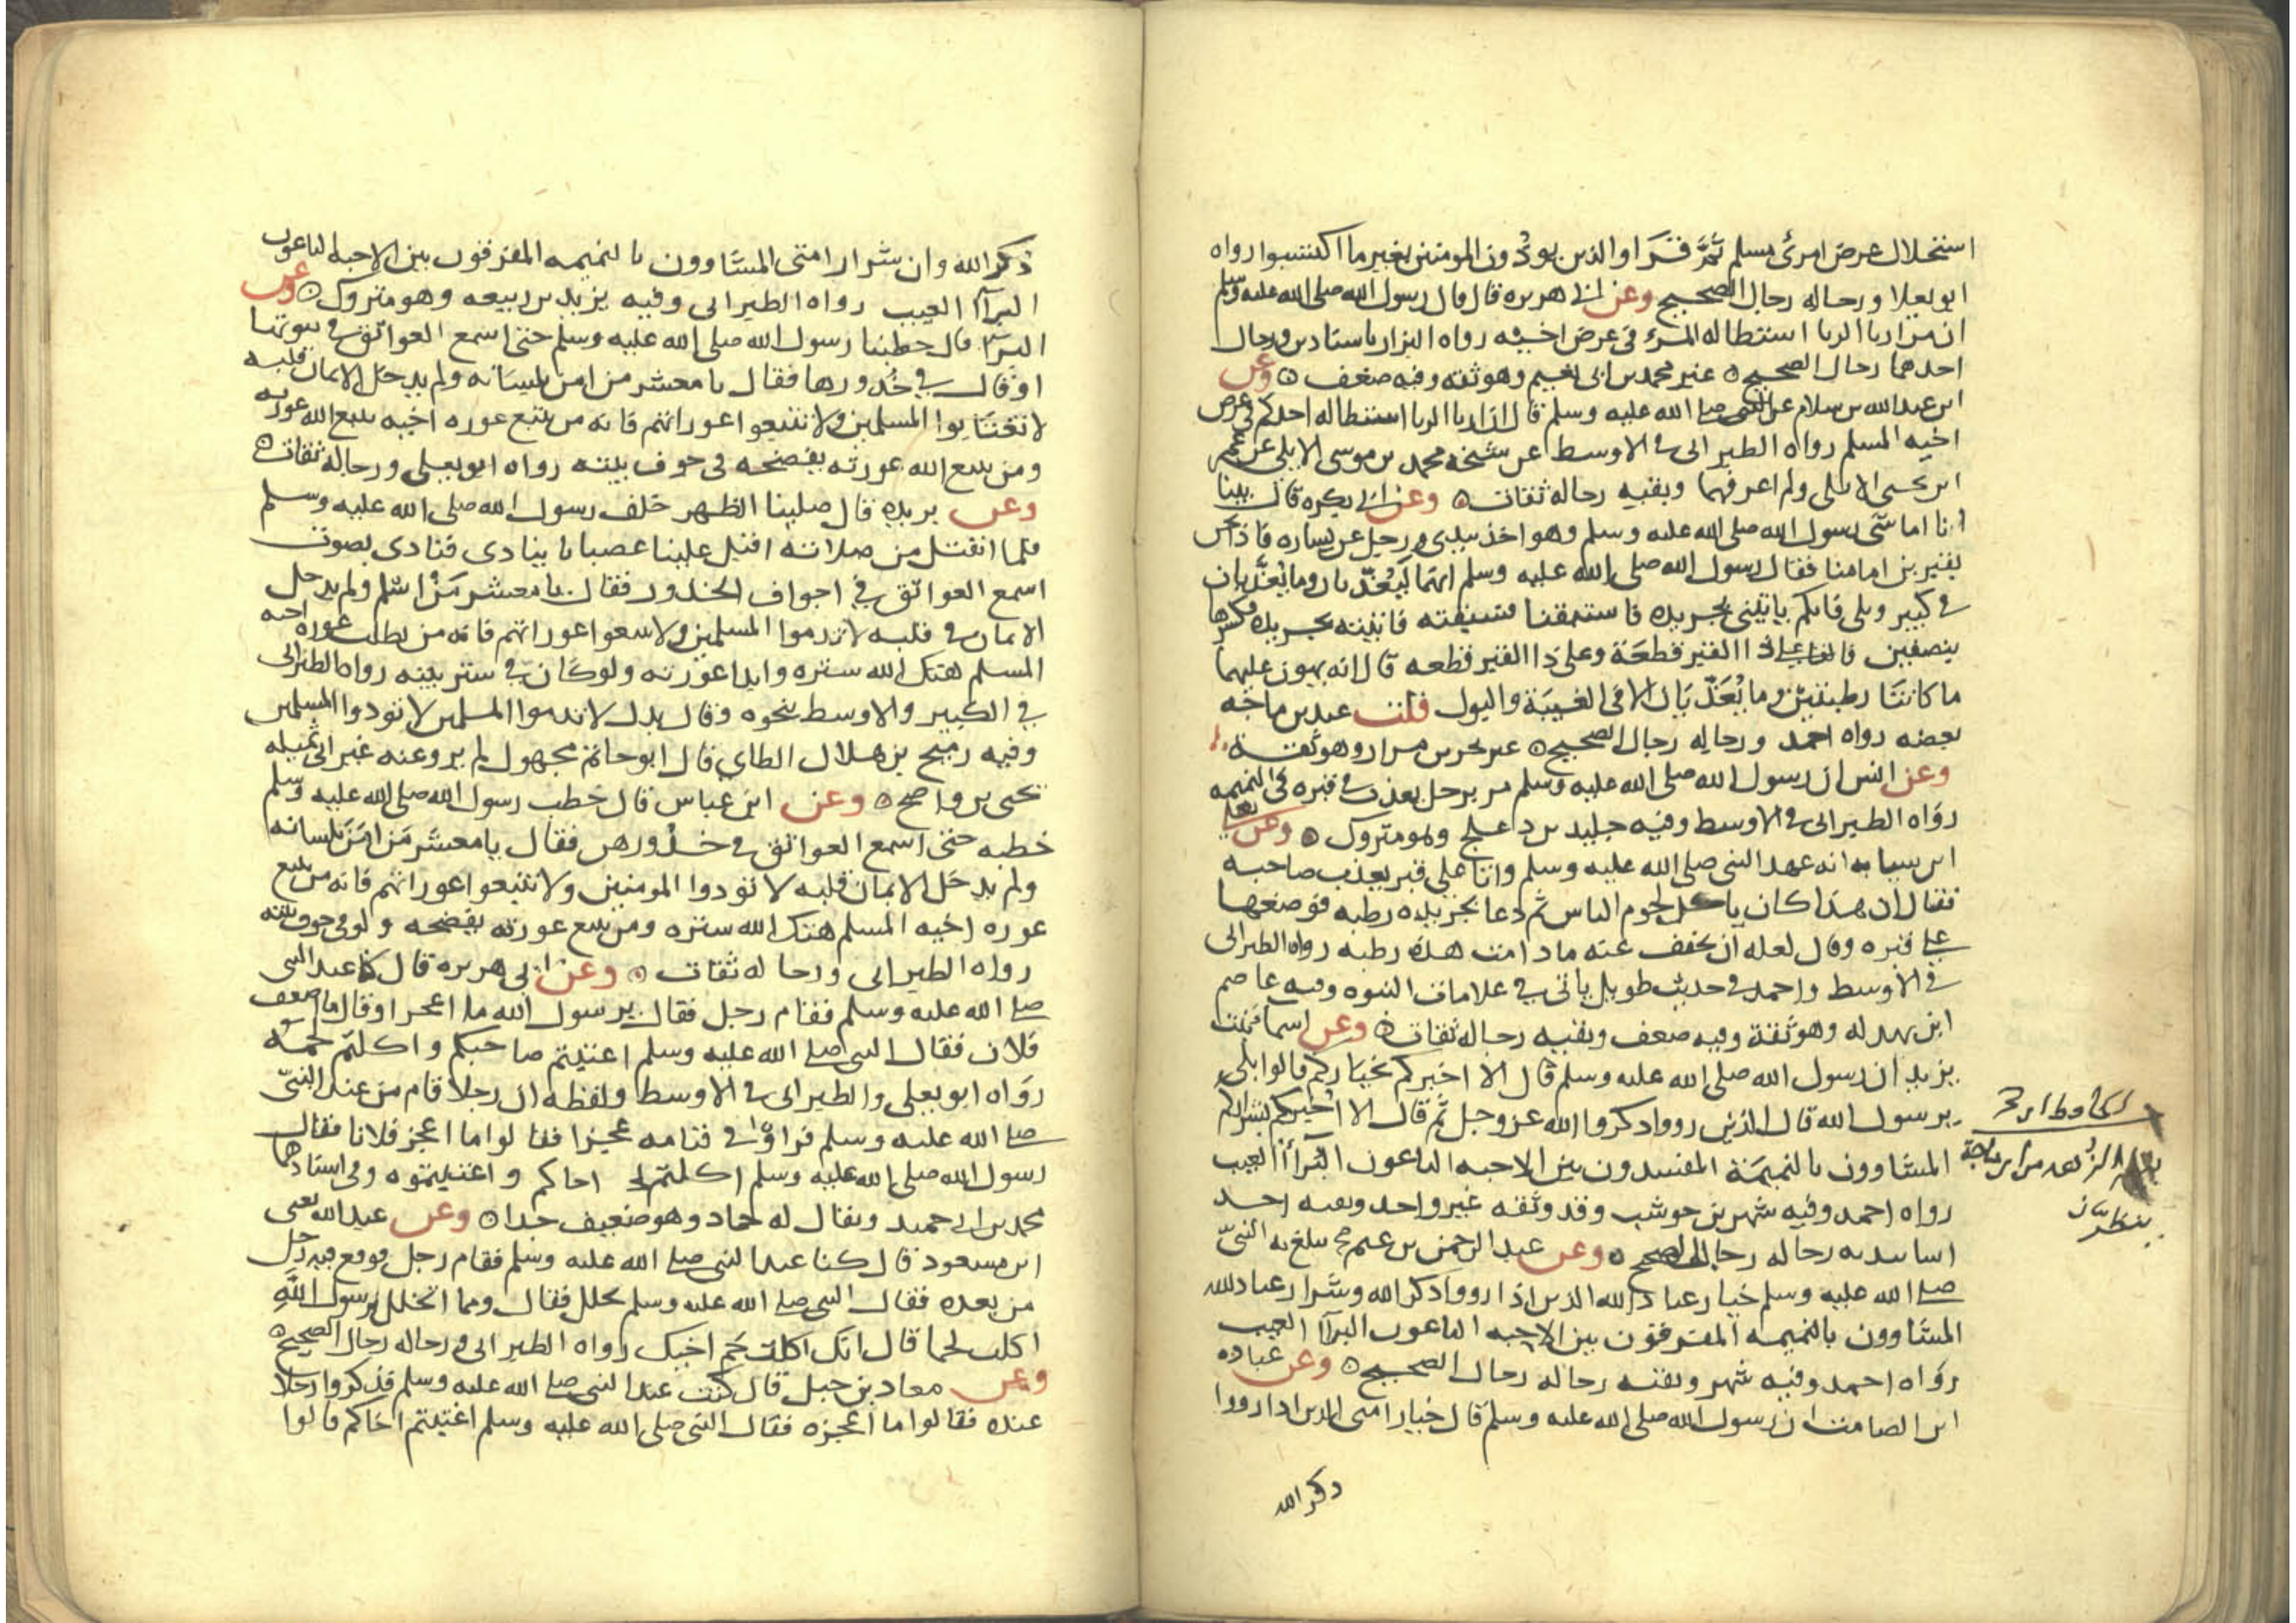 استحلال عرض امرئ مسلم ثم قرا والذين يوذون المومنين بغير ما اكتسبوا رواه
ابو يعلا ورجاله رجال الصحيح وعن ابي هريره قال قال رسول الله صلى الله عليه وسلم
ان من اربا الربا استطاله المرء في عرض اخيه رواه البزار باسنادين ورجال
احدهما رجال الصحيح غير محمد بن ابي نعيم وهو ثقه وفيه ضعف وعن
ابن عبد الله بن سلام عن النبي صلى الله عليه وسلم قال ان اربا الربا استطاله احدكم في عرض
اخيه المسلم رواه الطبراني في الاوسط عن شيخه محمد بن موسى الابلي عن عمر
ابن يحيى الابلي ولم اعرفهما وبقيه رجاله ثقات وعن ابي بكره قال بينا
انا اماشي رسول الله صلى الله عليه وسلم وهو اخذ بيدي ورجل عن يساره فاذا نحن
بقبرين امامنا فقال رسول الله صلى الله عليه وسلم انهما ليعذبان وما يعذبان
في كبير وبلى فايكم ياتيني بجريده فاستبقنا فسبقته فاتيته بجريده فكسرها
بنصفين فالقى على ذا القبر قطعة وعلى ذا القبر قطعه قال انه يهون عليهما
ما كانتا رطبتين وما يعذبان الا في الغيبة والبول قلت عند بن ماجه
بعضه رواه احمد ورجاله رجال الصحيح غير بحر بن مرار وهو ثقة
وعن انس ان رسول الله صلى الله عليه وسلم مر برجل يعذب في قبره في النميمه
رواه الطبراني في الاوسط وفيه خليد بن دعلج وهو متروك وعن يعلى
ابن سيابه انه عهد النبي صلى الله عليه وسلم واتا على قبر يعذب صاحبه
فقال ان هذا كان ياكل لحوم الناس ثم دعا بجريده رطبه فوضعها
على قبره وقال لعله ان يخفف عنه ما دامت هذه رطبه رواه الطبراني
في الاوسط واحمد في حديث طويل ياتي في علامات النبوه وفيه عاصم
ابن بهدله وهو ثقة وفيه ضعف وبقيه رجاله ثقات وعن اسما بنت
يزيد ان رسول الله صلى الله عليه وسلم قال الا اخبركم بخياركم قالوا بلى
يرسول الله قال الذين رووا ذكروا الله عز وجل ثم قال الا اخبركم بشراركم
المشاوون بالنميمة المفسدون بين الاحبه الباعون البرآا العيب
رواه احمد وفيه شهر بن حوشب وقد وثقه غير واحد وبقيه احد
اسانيده رجاله رجال الصحيح وعن عبد الرحمن بن غنم يبلغ به النبي
صلى الله عليه وسلم خيار عباد الله الذين اذا رووا ذكر الله وشرار عباد الله
المشاوون بالنميمه المفرقون بين الاحبه الباعون البرآا العيب
رواه احمد وفيه شهر وبقيه رجاله رجال الصحيح وعن عباده
ابن الصامت ان رسول الله صلى الله عليه وسلم قال خيار امتي الذين اذا رووا
ذكر الله
ذكر الله وان شرار امتي المشاوون بالنميمه المفرقون بين الاحبه الباعون
البرآا العيب رواه الطبراني وفيه يزيد بن ربيعه وهو متروك وعن
البرآ قال خطبنا رسول الله صلى الله عليه وسلم حتى اسمع العواتق في بيوتها
او قال في خدورها فقال يا معشر من امن بلسانه ولم يدخل الايمان قلبه
لا تغتابوا المسلمين ولا تتبعوا عوراتهم فانه من يتبع عوره اخيه يتبع الله عورته
ومن يتبع الله عورته يفضحه في جوف بيته رواه ابو يعلى ورجاله ثقات
وعن بريده قال صلينا الظهر خلف رسول الله صلى الله عليه وسلم
فلما انفتل من صلاته اقبل علينا غضبانا ينادى فنادى بصوت
اسمع العواتق في اجواف الخدور فقال يا معشر من اسلم ولم يدخل
الايمان في قلبه لا تذموا المسلمين ولا تتبعوا عوراتهم فانه من يطلب عوره اخيه
المسلم هتك الله ستره وابدا عورته ولو كان في ستر بيته رواه الطبراني
في الكبير والاوسط بنحوه وقال بدل لا تذموا المسلمين لا توذوا المسلمين
وفيه رميح بن هلال الطاي قال ابو حاتم مجهول لم يرو عنه غير ابي تميله
يحيى بن واضح وعن ابن عباس قال خطب رسول الله صلى الله عليه وسلم
خطبه حتى اسمع العواتق في خدورهن فقال يا معشر من امن بلسانه
ولم يدخل الايمان قلبه لا توذوا المومنين ولا تتبعوا عوراتهم فانه من يتبع
عوره اخيه المسلم هتك الله ستره ومن يتبع عورته يفضحه ولو في جوف بيته
رواه الطبراني ورجاله ثقات وعن ابي هريره قال كنا عند النبي
صلى الله عليه وسلم فقام رجل فقال يرسول الله ما اعجز او قال ما اضعف
فلان فقال النبي صلى الله عليه وسلم اغتبتم صاحبكم واكلتم لحمه
رواه ابو يعلى والطبراني في الاوسط ولفظه ان رجلا قام من عند النبي
صلى الله عليه وسلم فراوا في قيامه عجزا فقالوا ما اعجز فلانا فقال
رسول الله صلى الله عليه وسلم اكلتم اخاكم واغتبتموه وفي اسنادهما
محمد بن ابي حميد ويقال له حماد وهو ضعيف جدا وعن عبد الله يعني
ابن مسعود قال كنا عند النبي صلى الله عليه وسلم فقام رجل فوقع فيه رجل
من بعده فقال النبي صلى الله عليه وسلم تخلل فقال ومما اتخلل يرسول الله
اكلت لحما قال انك اكلت لحم اخيك رواه الطبراني ورجاله رجال الصحيح
وعن معاذ بن جبل قال كنت عند النبي صلى الله عليه وسلم فذكروا رجلا
عنده فقالوا ما اعجزه فقال النبي صلى الله عليه وسلم اغتبتم اخاكم قالوا